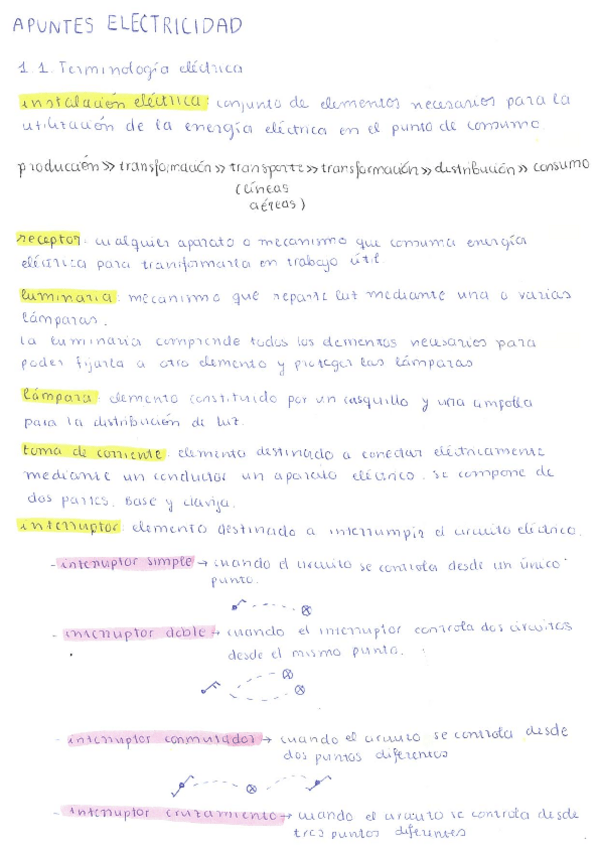 APUNTES ELECTRICIDAD
1.1. Terminología eléctrica
instalación eléctrica: conjunto de elementos necesarios para la
utilización de la energía eléctrica en el punto de consumo.
producción >> transformación >> transporte >> transformación >> distribución >> consumo
(líneas
aéreas)
receptor: cualquier aparato o mecanismo que consuma energía
eléctrica para transformarla en trabajo útil.
luminaria: mecanismo que reparte luz mediante una o varias
lámparas.
la luminaria comprende todos los elementos necesarios para
poder fijarla a otro elemento y proteger las lámparas
lámpara: elemento constituido por un casquillo y una ampolla
para la distribución de luz.
toma de corriente: elemento destinado a conectar eléctricamente
mediante un conductor un aparato eléctrico. se compone de
dos partes. Base y clavija.
interruptor: elemento destinado a interrumpir el circuito eléctrico.
- interruptor simple → cuando el circuito se controla desde un único
punto.
- interruptor doble → cuando el interruptor controla dos circuitos
desde el mismo punto.
- interruptor conmutador → cuando el circuito se controla desde
dos puntos diferentes
- interruptor cruzamiento → cuando el circuito se controla desde
tres puntos diferentes